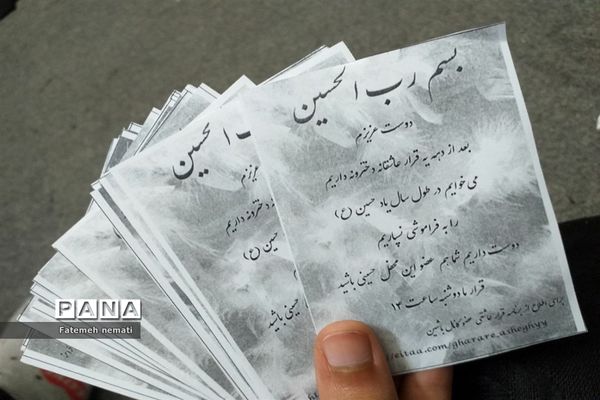 بسم رب الحسین
دوست عزیزم
بعد از دهه یه قرار عاشقانه دخترونه داریم
می خوایم در طول سال یاد حسین (ع)
را به فراموشی نسپاریم
دوست داریم شما هم عضو این محفل حسینی باشید
قرار ما دوشنبه ساعت ۱۳
برای اطلاع از برنامه قرار عاشقی عضو کانال باشین
/eitaa.com/gharare_asheghyy
الحسین
عزیزم
دخترونه داریم
حسین (ع)
حسینی باشید
PANA
Fatemeh nemati